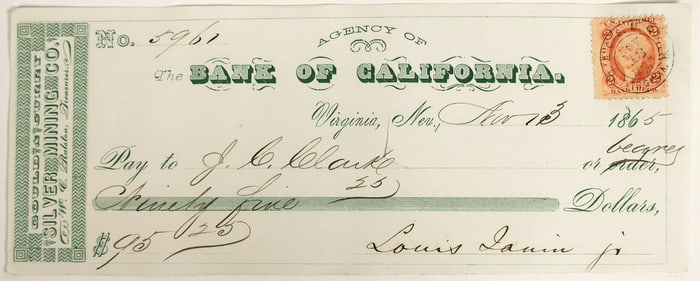 GOULD & CURRY
SILVER MINING CO.
W. C. Ralston, Treasurer
No. 5961
AGENCY OF
The BANK OF CALIFORNIA.
Virginia, Nev., Nov 13 1865
Pay to J. C. Clark or order, bearer
Ninety five 25 Dollars,
$ 95 25
Louis Janin jr